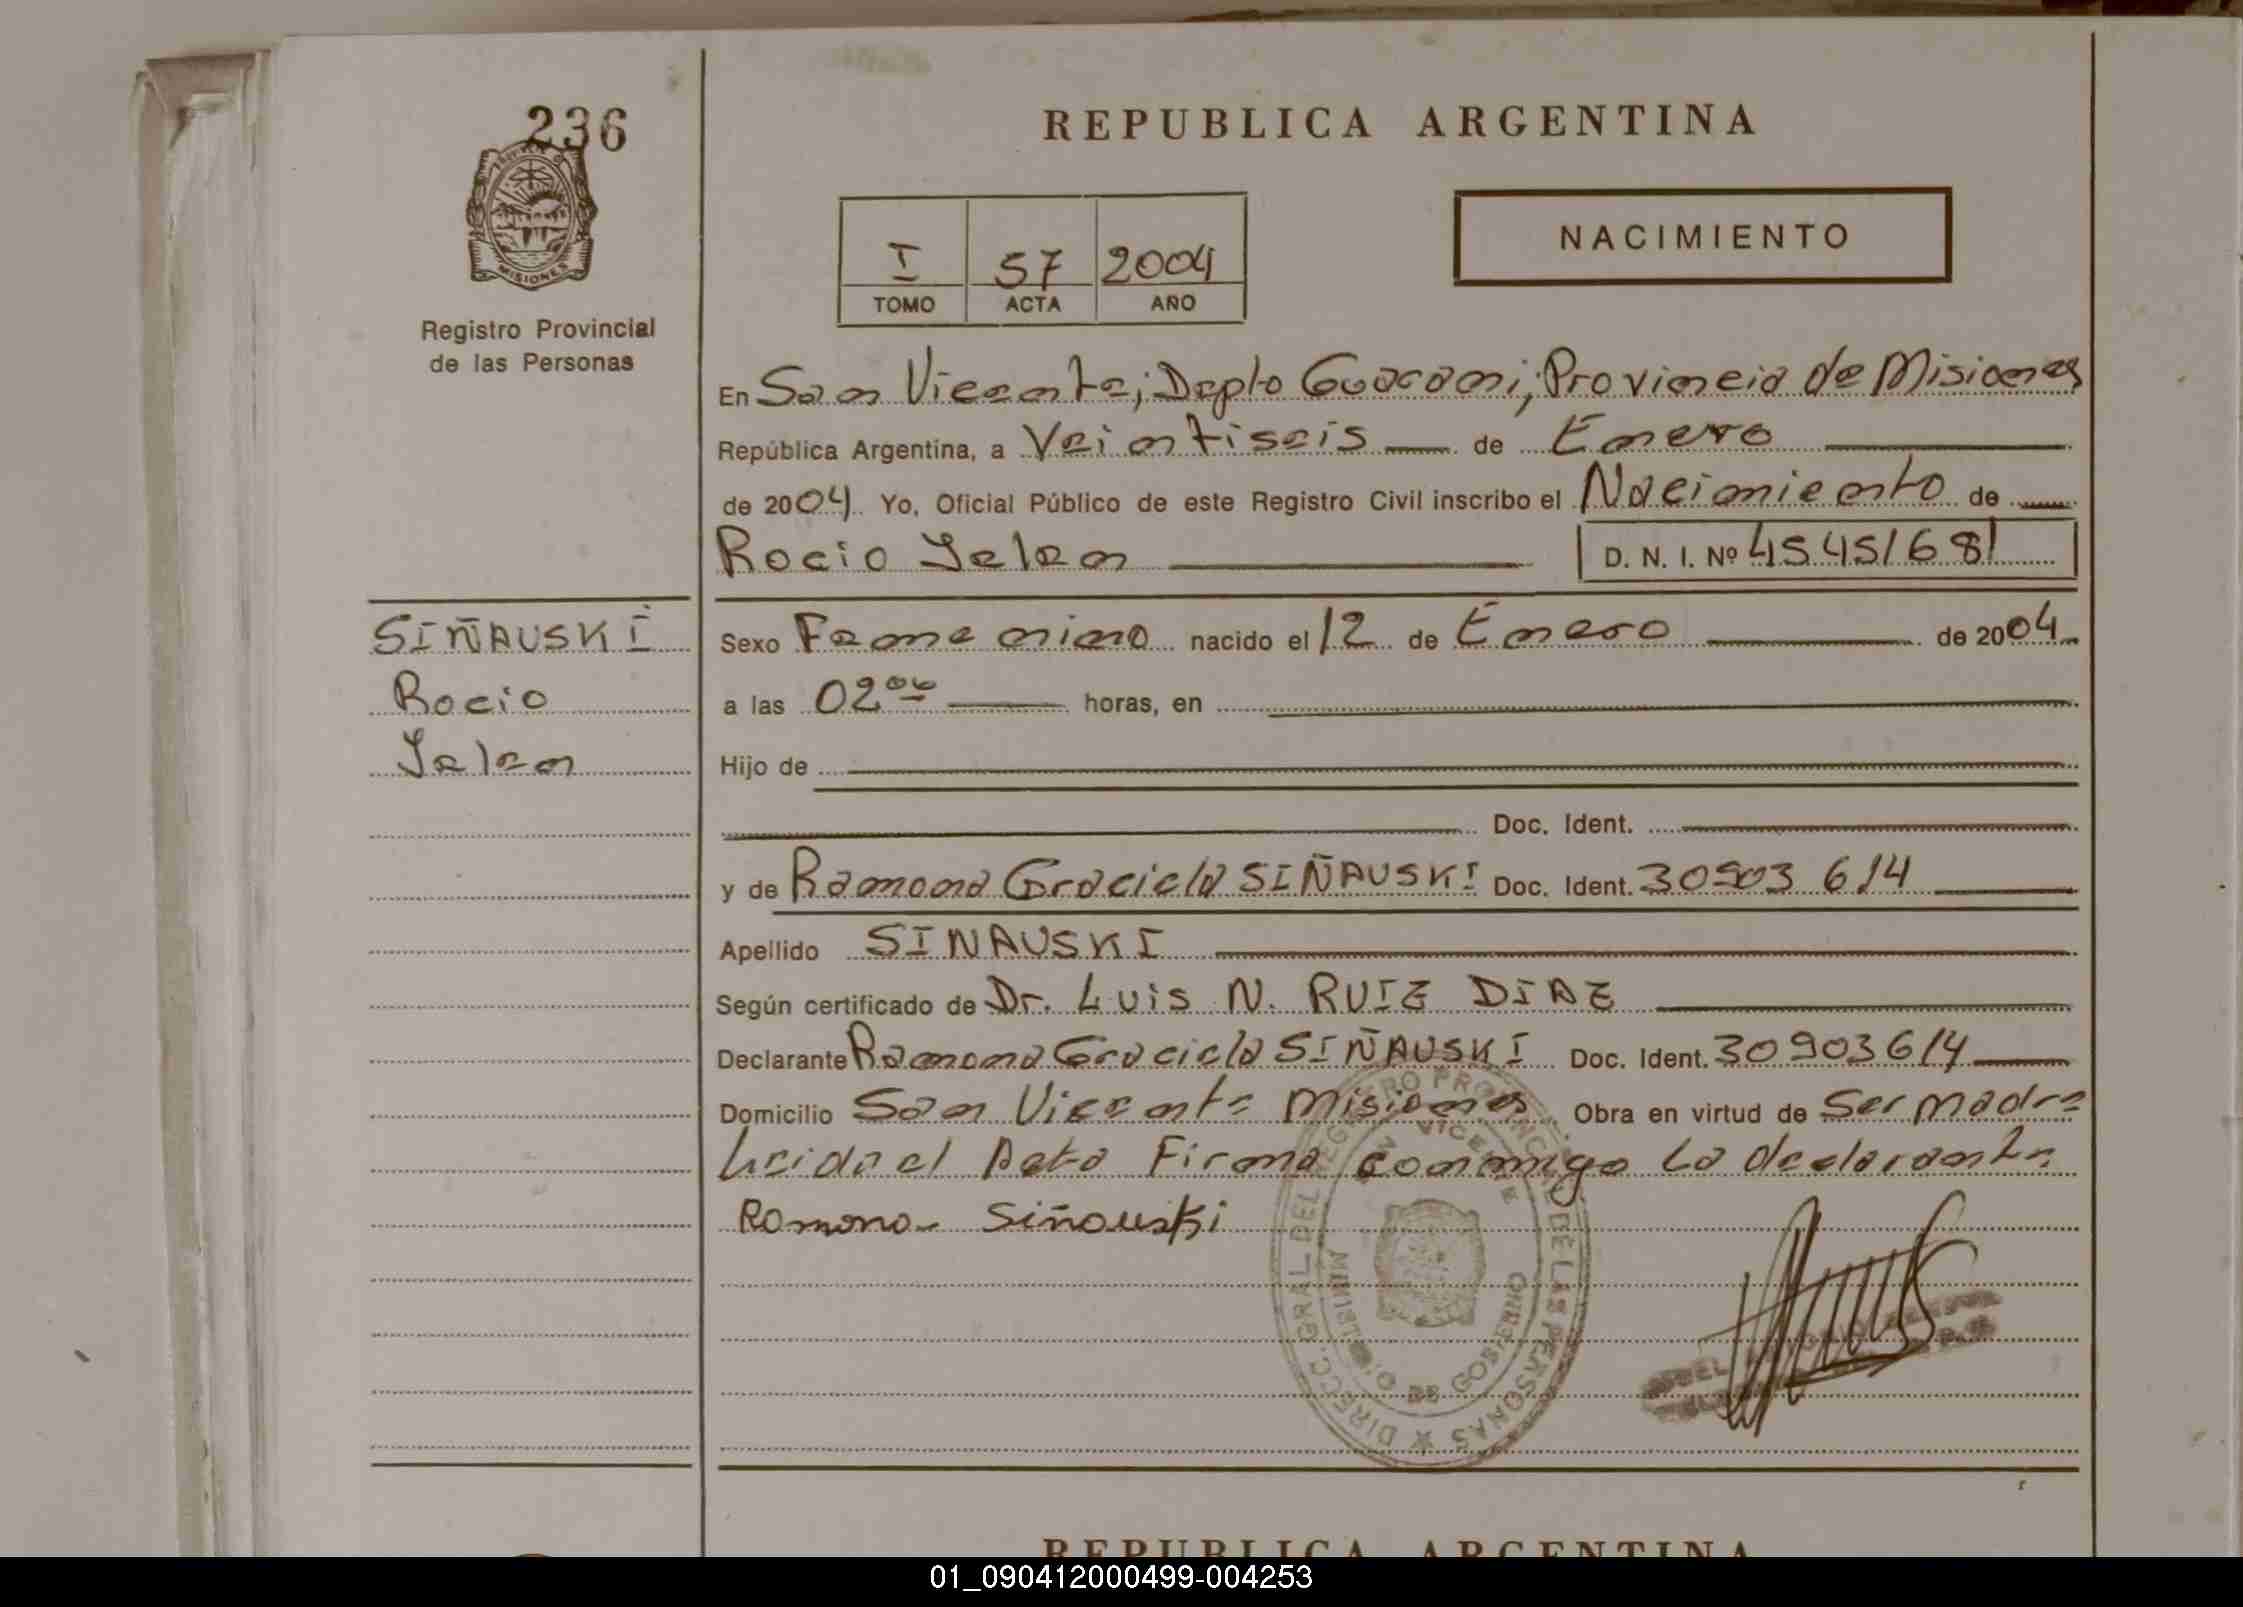 236
PROVINCIA D
MISIONES
Registro Provincial
de las Personas
REPUBLICA ARGENTINA
I 57 2004
TOMO ACTA AÑO
NACIMIENTO
En San Vicente; Depto Guarani; Provincia de Misiones
República Argentina, a Veintiseis de Enero
de 2004 Yo, Oficial Público de este Registro Civil inscribo el Nacimiento de
Rocio Yelen D. N. I. Nº 45451681
SIÑAUSKI
Rocio
Yelen
Sexo Femenino nacido el 12 de Enero de 2004
a las 02 00 horas, en
Hijo de
Doc. Ident.
y de Ramona Graciela SIÑAUSKI Doc. Ident. 30903 614
Apellido SINAUSKI
Según certificado de Dr. Luis N. RUIZ DIAZ
Declarante Ramona Graciela SIÑAUSKI Doc. Ident. 30903614
Domicilio San Vicente Misiones Obra en virtud de Ser Madre
Leida el Acta Firma conmigo La declarante
Ramona Siñauski
DIRECC. GRAL. DEL REGISTRO PROVINCIAL DE LAS PERSONAS
SAN VICENTE
MINISTERIO DE GOBIERNO
REPUBLICA ARGENTINA
01_090412000499-004253